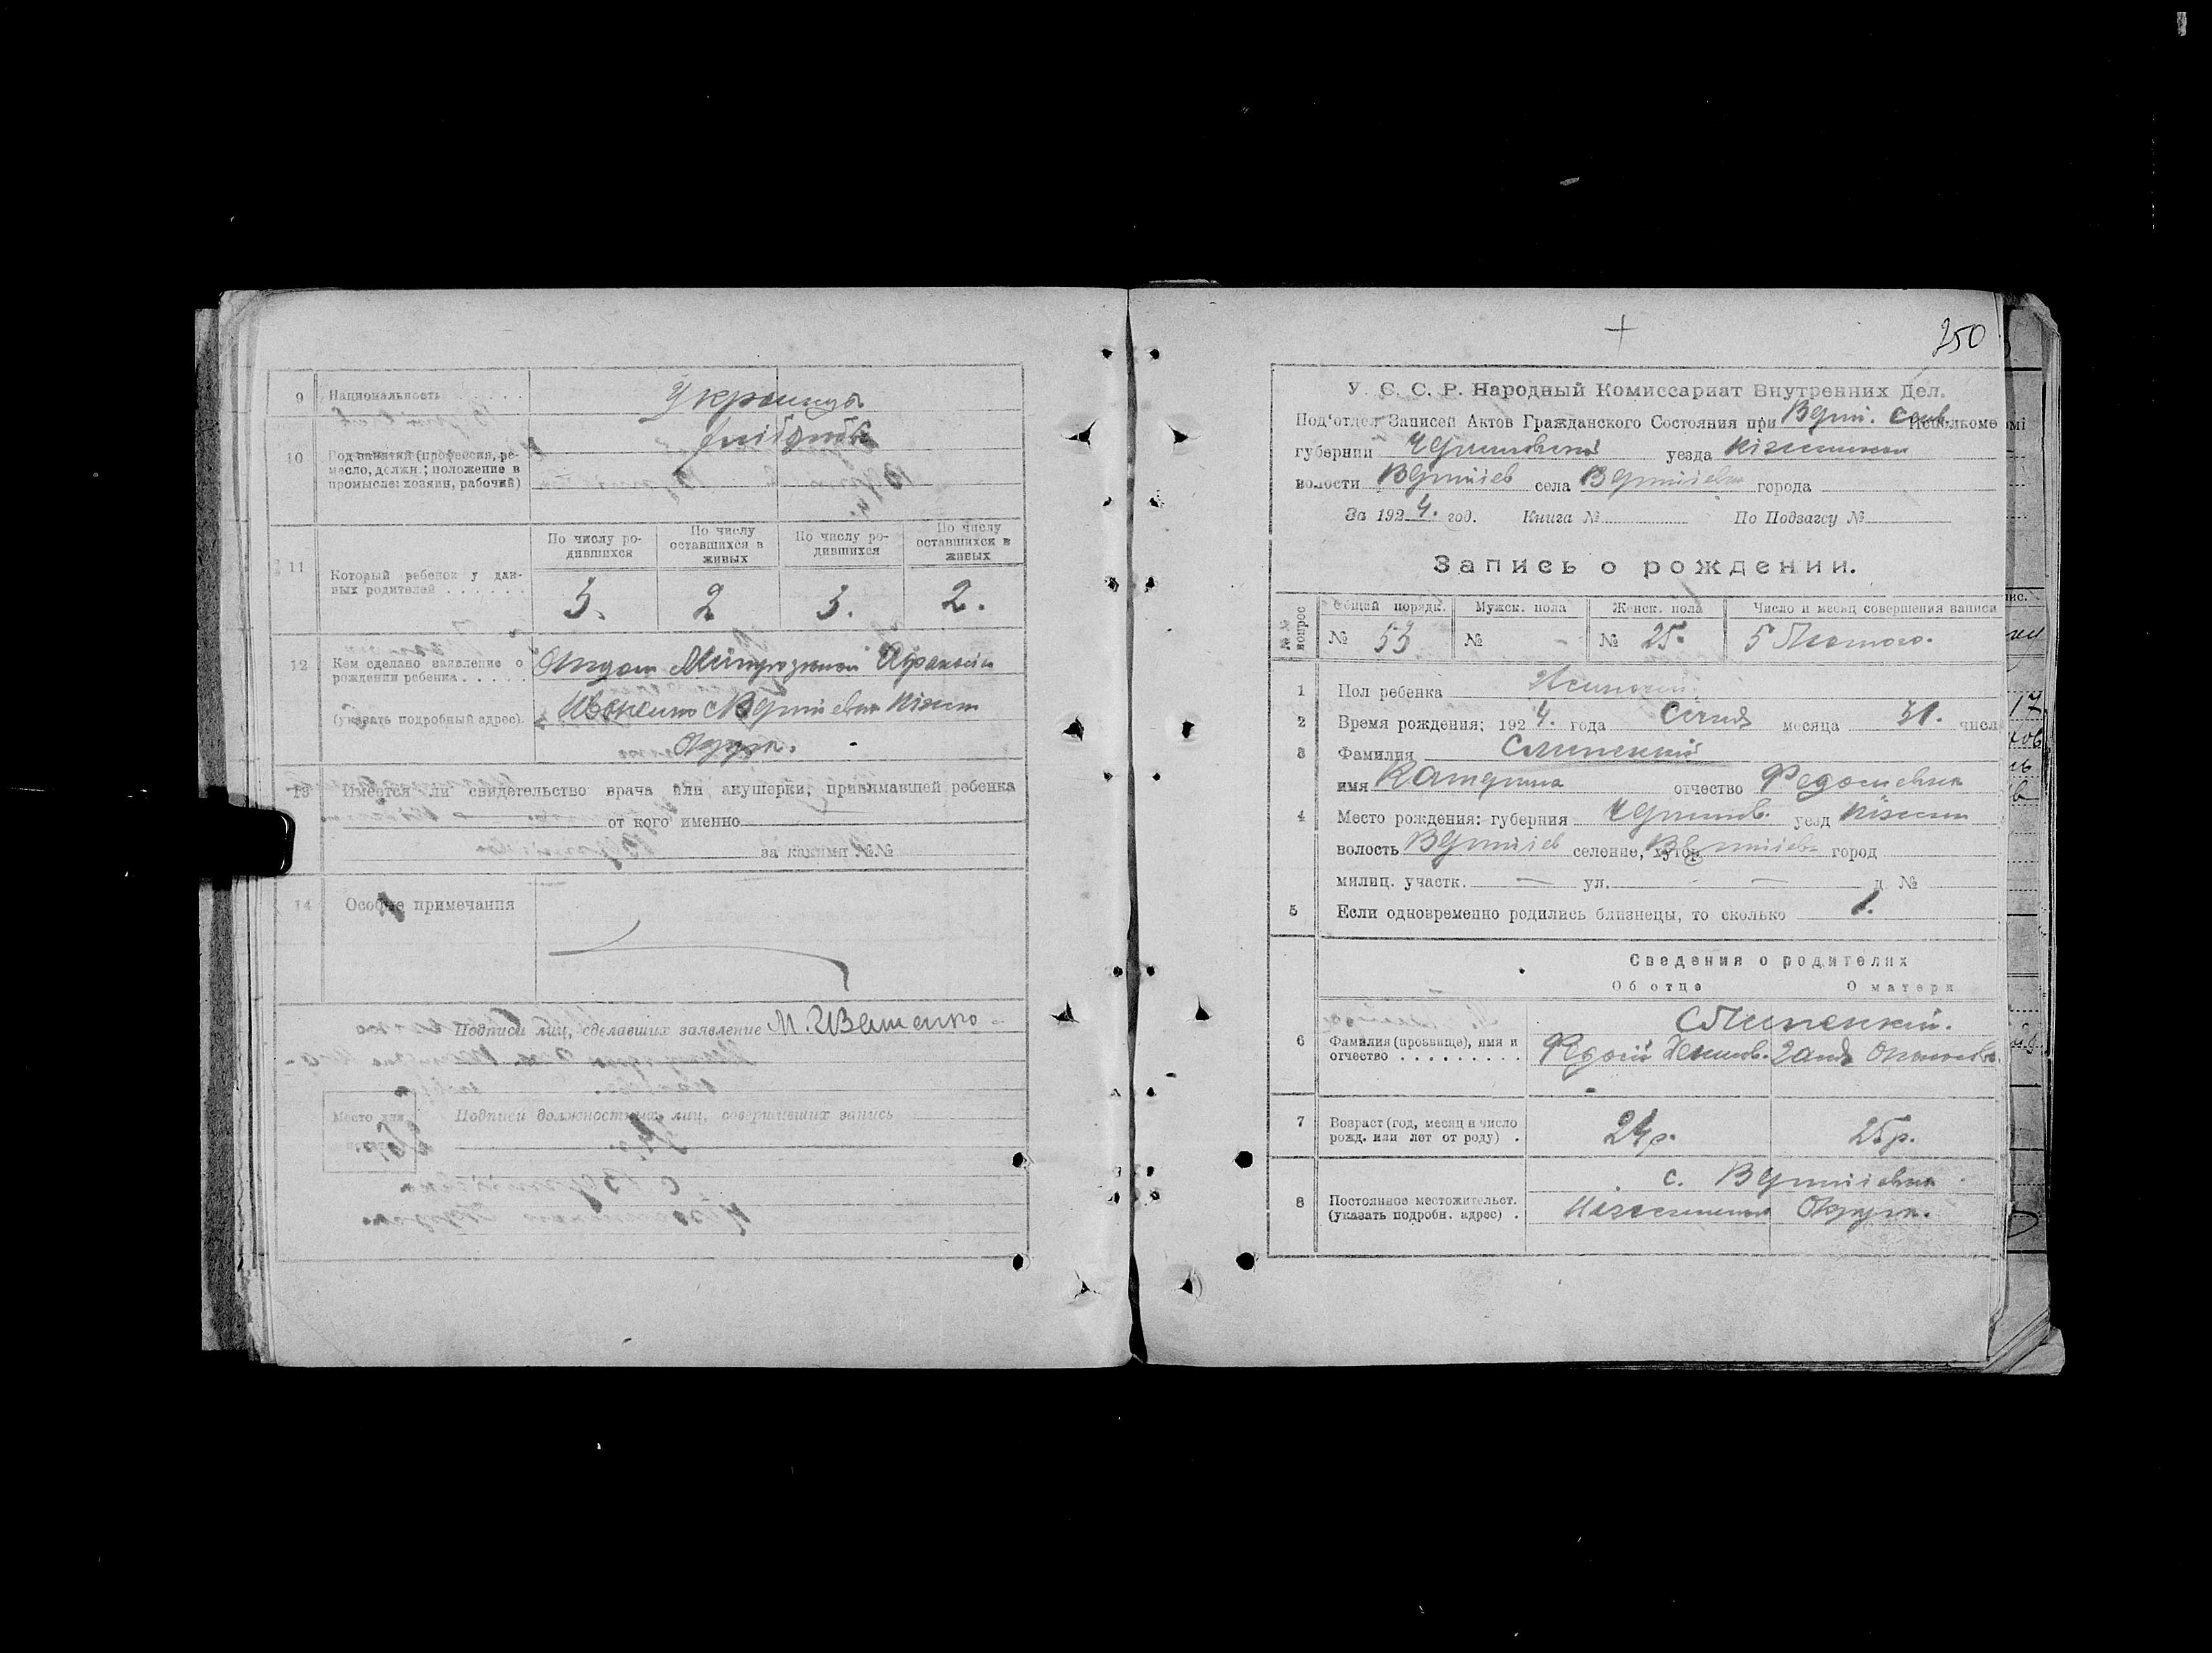 9 Национальность . . . . Украинцы
10 Род занятий (профессия, ре-
месло, должн.; положение в
промысле: хозяин, рабочий)
хліборобы
11 Который ребенок у дан-
ных родителей . . . . . .
По числу ро-
дившихся
По числу
оставшихся в
живых
По числу ро-
дившихся
По числу
оставшихся в
живых
3. 2 3. 2.
12 Кем сделано заявление о
рождении ребенка . . . . .
(указать подробный адрес).
Отцом
Ивженко с Вертіевка Ніжин
Округи.
13 Имеется ли свидетельство врача или акушерки, принимавшей ребенка
от кого именно
за какими №№
14 Особые примечания
Подписи лиц, сделавших заявление М. Иващенко
Место для
Подписи должностных лиц, совершивших запись
250
У. С. С. Р. Народный Комиссариат Внутренних Дел.
Под'отдел Записей Актов Гражданского Состояния при Верт. Исполкоме
губернии Черниговской уезда Ніженском
волости Вертіев села Вертіевка города
За 1924. год. Книга № По Подзагсу №
Запись о рождении.
№№ вопрос
Общий порядк. Мужск. пола Женск. пола Число и месяц совершения записи
№ 53 № - № 25. 5 Лютого.
1 Пол ребенка
2 Время рождения; 1924. года Січня месяца 31. числ
3 Фамилия Слипенкий
имя Катерина отчество Федосиевна
4 Место рождения: губерния Чернигов. уезд Ніжин
волость Вертіев селение, хутор Вертіевка город
милиц. участк. — ул. — д. №
5 Если одновременно родились близнецы, то сколько 1.
Сведения о родителях
Об отце О матери
6 Фамилия (прозвище), имя и
отчество . . . . . . . . .
Слипенкий.
Федосій
7 Возраст (год, месяц и число
рожд. или лет от роду) .
24 р. 25 р.
8 Постоянное местожительст.
(указать подробн. адрес) .
с. Вертіевка
Ніженского Округи.